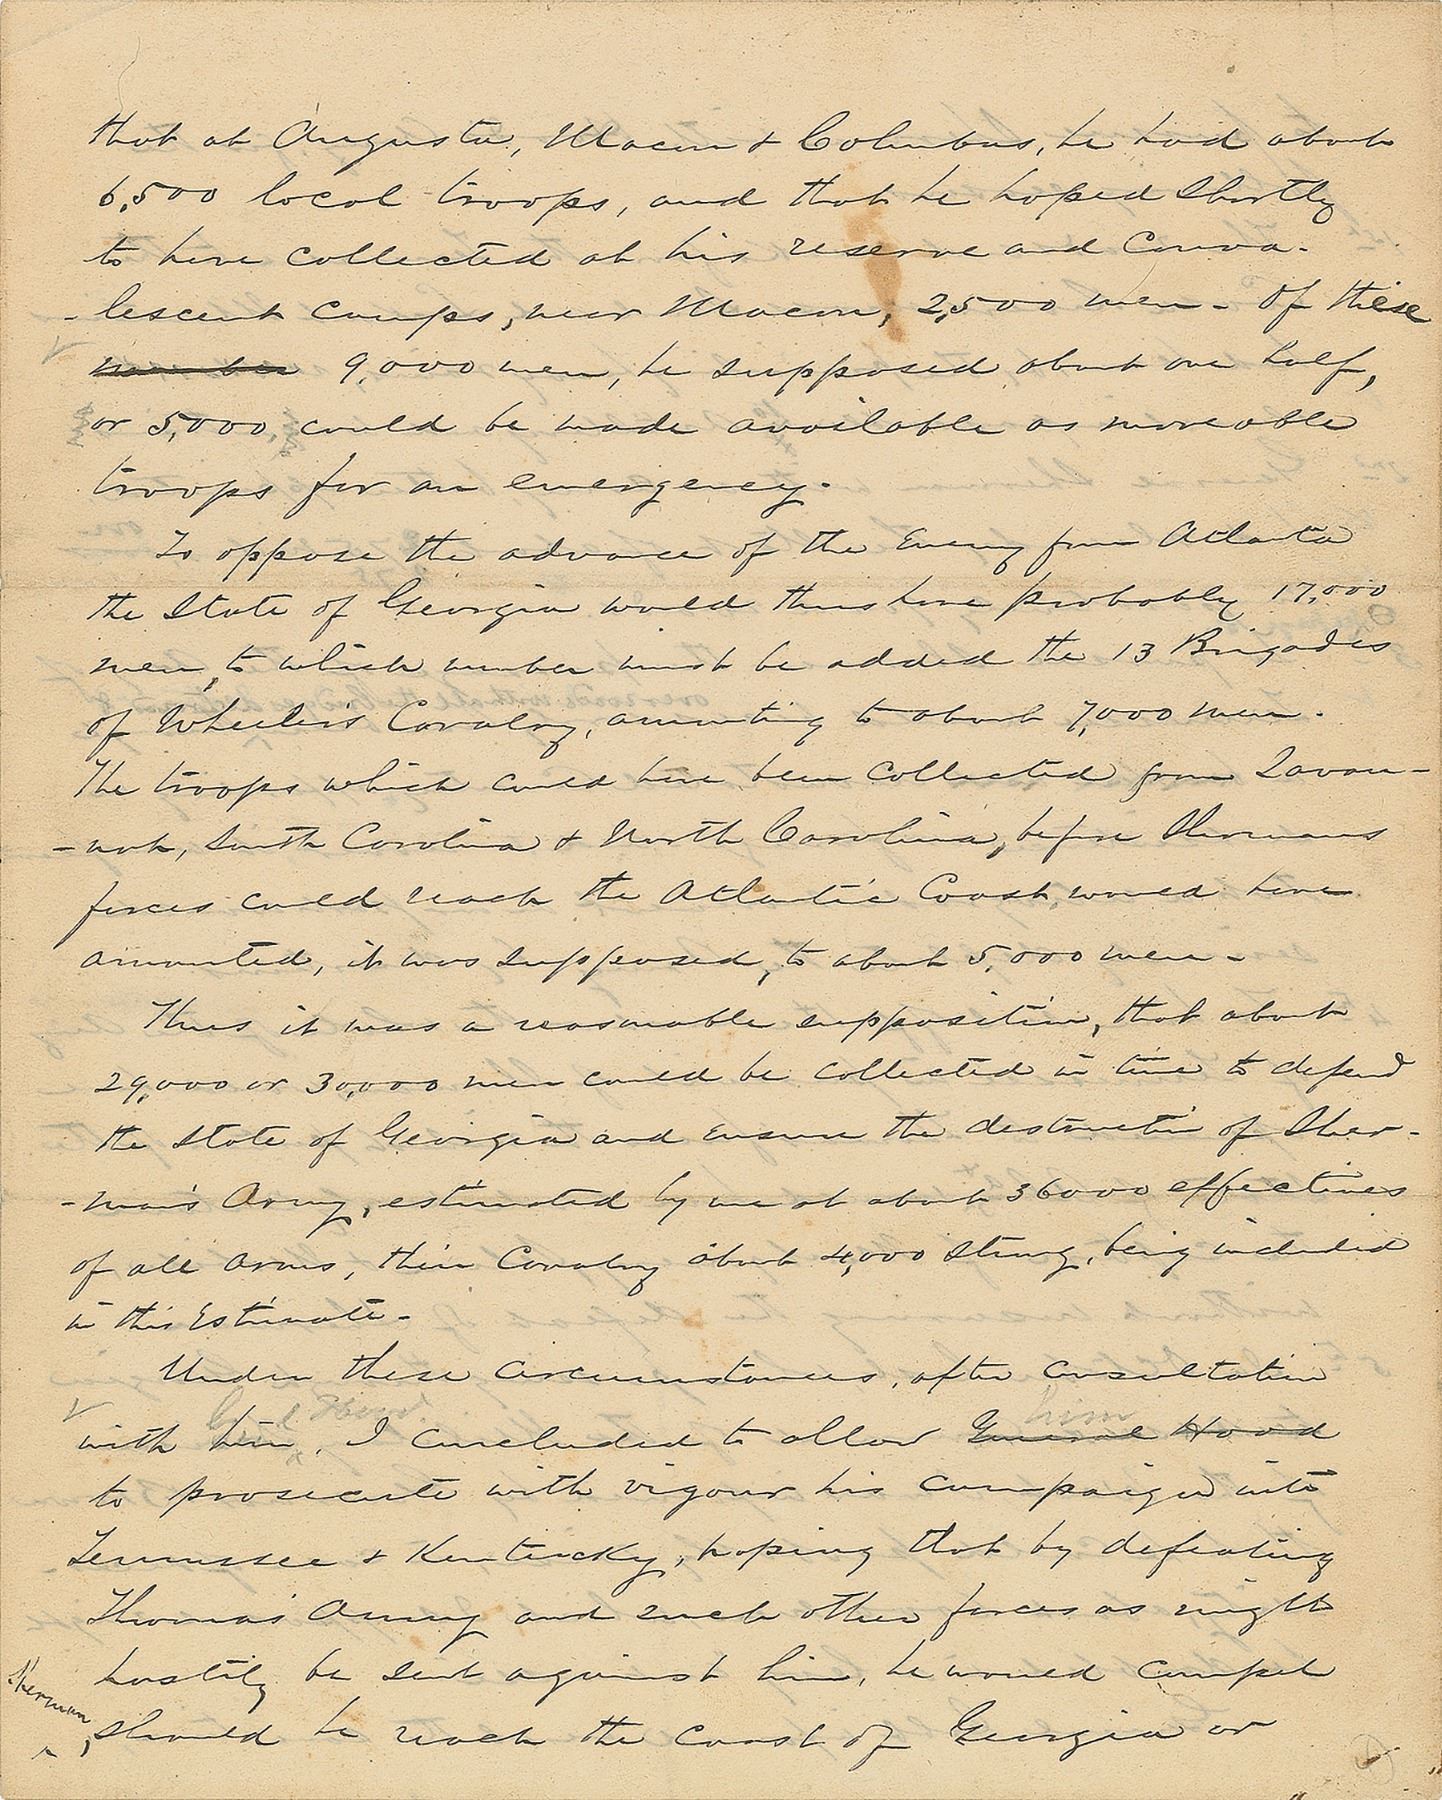 that at Augusta, Macon & Columbus, he had about
6,500 local troops, and that he hoped shortly
to have collected at his reserve and conva-
- lescent camps, near Macon, 2,500 men - Of these
number 9,000 men, he supposed about one half,
or 5,000, could be made available as moveable
troops for an emergency.
To oppose the advance of the Enemy from Atlanta
the State of Georgia would thus have probably 17,000
men, to which number must be added the 13 Brigades
of Wheeler's Cavalry, amounting to about 7,000 men.
The troops which could have been collected from Savan-
- nah, South Carolina & North Carolina, before Shermans
forces could reach the Atlantic Coast, would have
amounted, it was supposed, to about 5,000 men -
Thus it was a reasonable supposition, that about
29,000 or 30,000 men could be collected in time to defend
the State of Georgia and ensure the destruction of Sher-
- man's Army, estimated by me at about 36000 effectives
of all arms, their Cavalry about 4,000 strong, being included
in this Estimate -
Under these circumstances, after consultation
Genl Hood him
with him, I concluded to allow General Hood
to prosecute with vigour his campaign into
Tennessee & Kentucky, hoping that by defeating
Thomas's Army and such other forces as might
hastily be sent against him, he would compel
Sherman,
should he reach the coast of Georgia or